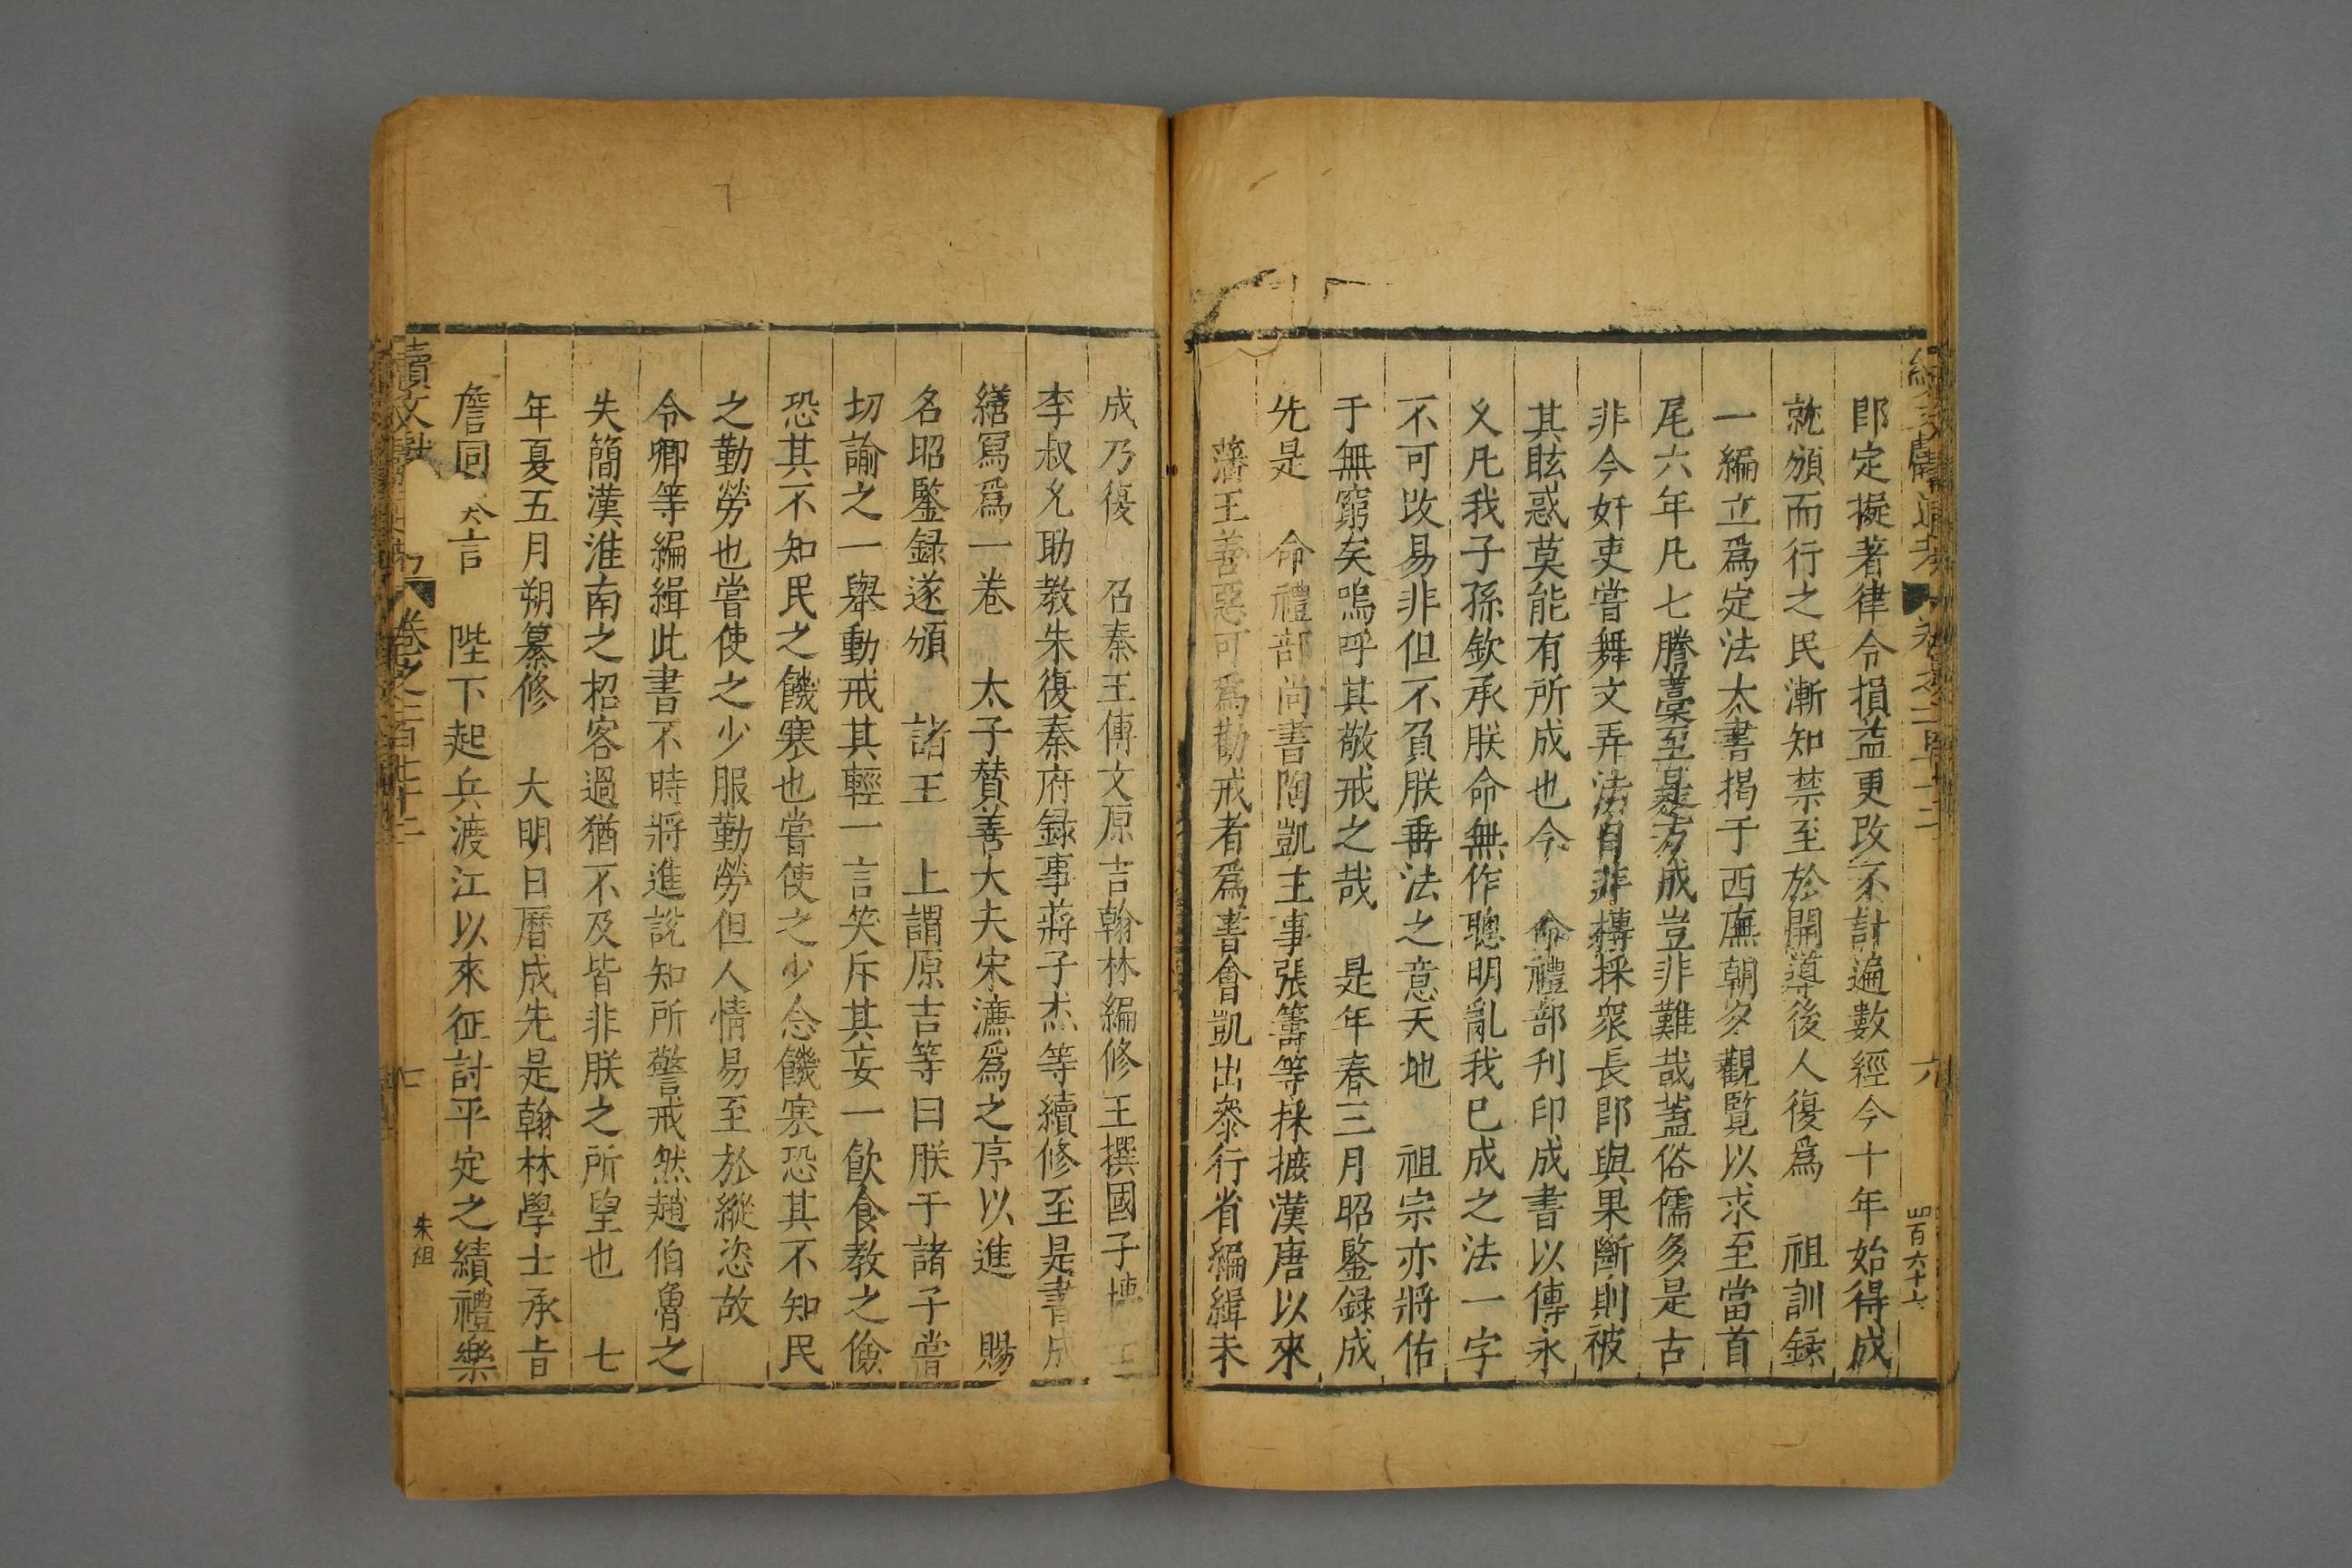 卽定擬著律令損益更改不計遍數經今十年始得成
就頒而行之民漸知禁至於開導後人復爲 祖訓錄
一編立爲定法大書揭于西廡朝夕觀覽以求至當首
尾六年凡七謄藁至是方成豈非難哉蓋俗儒多是古
非今奸吏嘗舞文弄法自非摶採衆長卽與果斷則被
其眩惑莫能有所成也今 命禮部刋印成書以傳永
久凡我子孫欽承朕命無作聰明亂我已成之法一字
不可改易非但不負朕垂法之意天地 祖宗亦將佑
于無窮矣嗚呼其敬戒之哉 是年春三月昭鑒録成
先是 命禮部尚書陶凱主事張籌等採摭漢唐以來
藩王善惡可爲勸戒者爲書會凱出叅行省編緝未
成乃復 召秦王傅文原吉翰林編修王撰國子博
李叔允助教朱復秦府録事蔣子杰等續修至是書成
繕寫爲一卷 太子贊善大夫宋濂爲之序以進 賜
名昭鑒録遂頒 諸王 上謂原吉等曰朕于諸子嘗
切諭之一舉動戒其輕一言笑斥其妄一飲食教之儉
恐其不知民之饑寒也嘗使之少念饑寒恐其不知民
之勤勞也嘗使之少服勤勞但人情易至於縱恣故
令卿等編緝此書不時將進說知所警戒然趙伯魯之
失簡漢淮南之招客過猶不及皆非朕之所望也 七
年夏五月朔纂修 大明日曆成先是翰林學士承旨
詹同 言 陛下起兵渡江以來征討平定之績禮樂
續文獻通考 卷之二百七十二
六
四百六十七
卷之二百七十二
七
朱祖